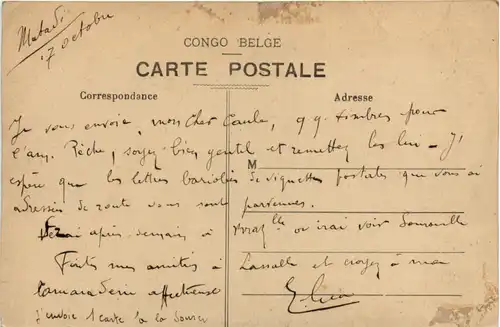 Matadi
17 octobre
CONGO BELGE
CARTE POSTALE
Correspondance
Adresse
Je vous envoie, mon cher Caula, qq. timbres pour
l'am. Pêche, soyez bien gentil et remettez les lui - J'
M
espère que les lettres bariolées de vignettes postales que vous ai
adressées de route vous sont parvenues.
après-demain à ou irai voir
Faites mes amitiés à Lassalle et croyez à ma
camaraderie affectueuse
J'envoie 1 carte à la